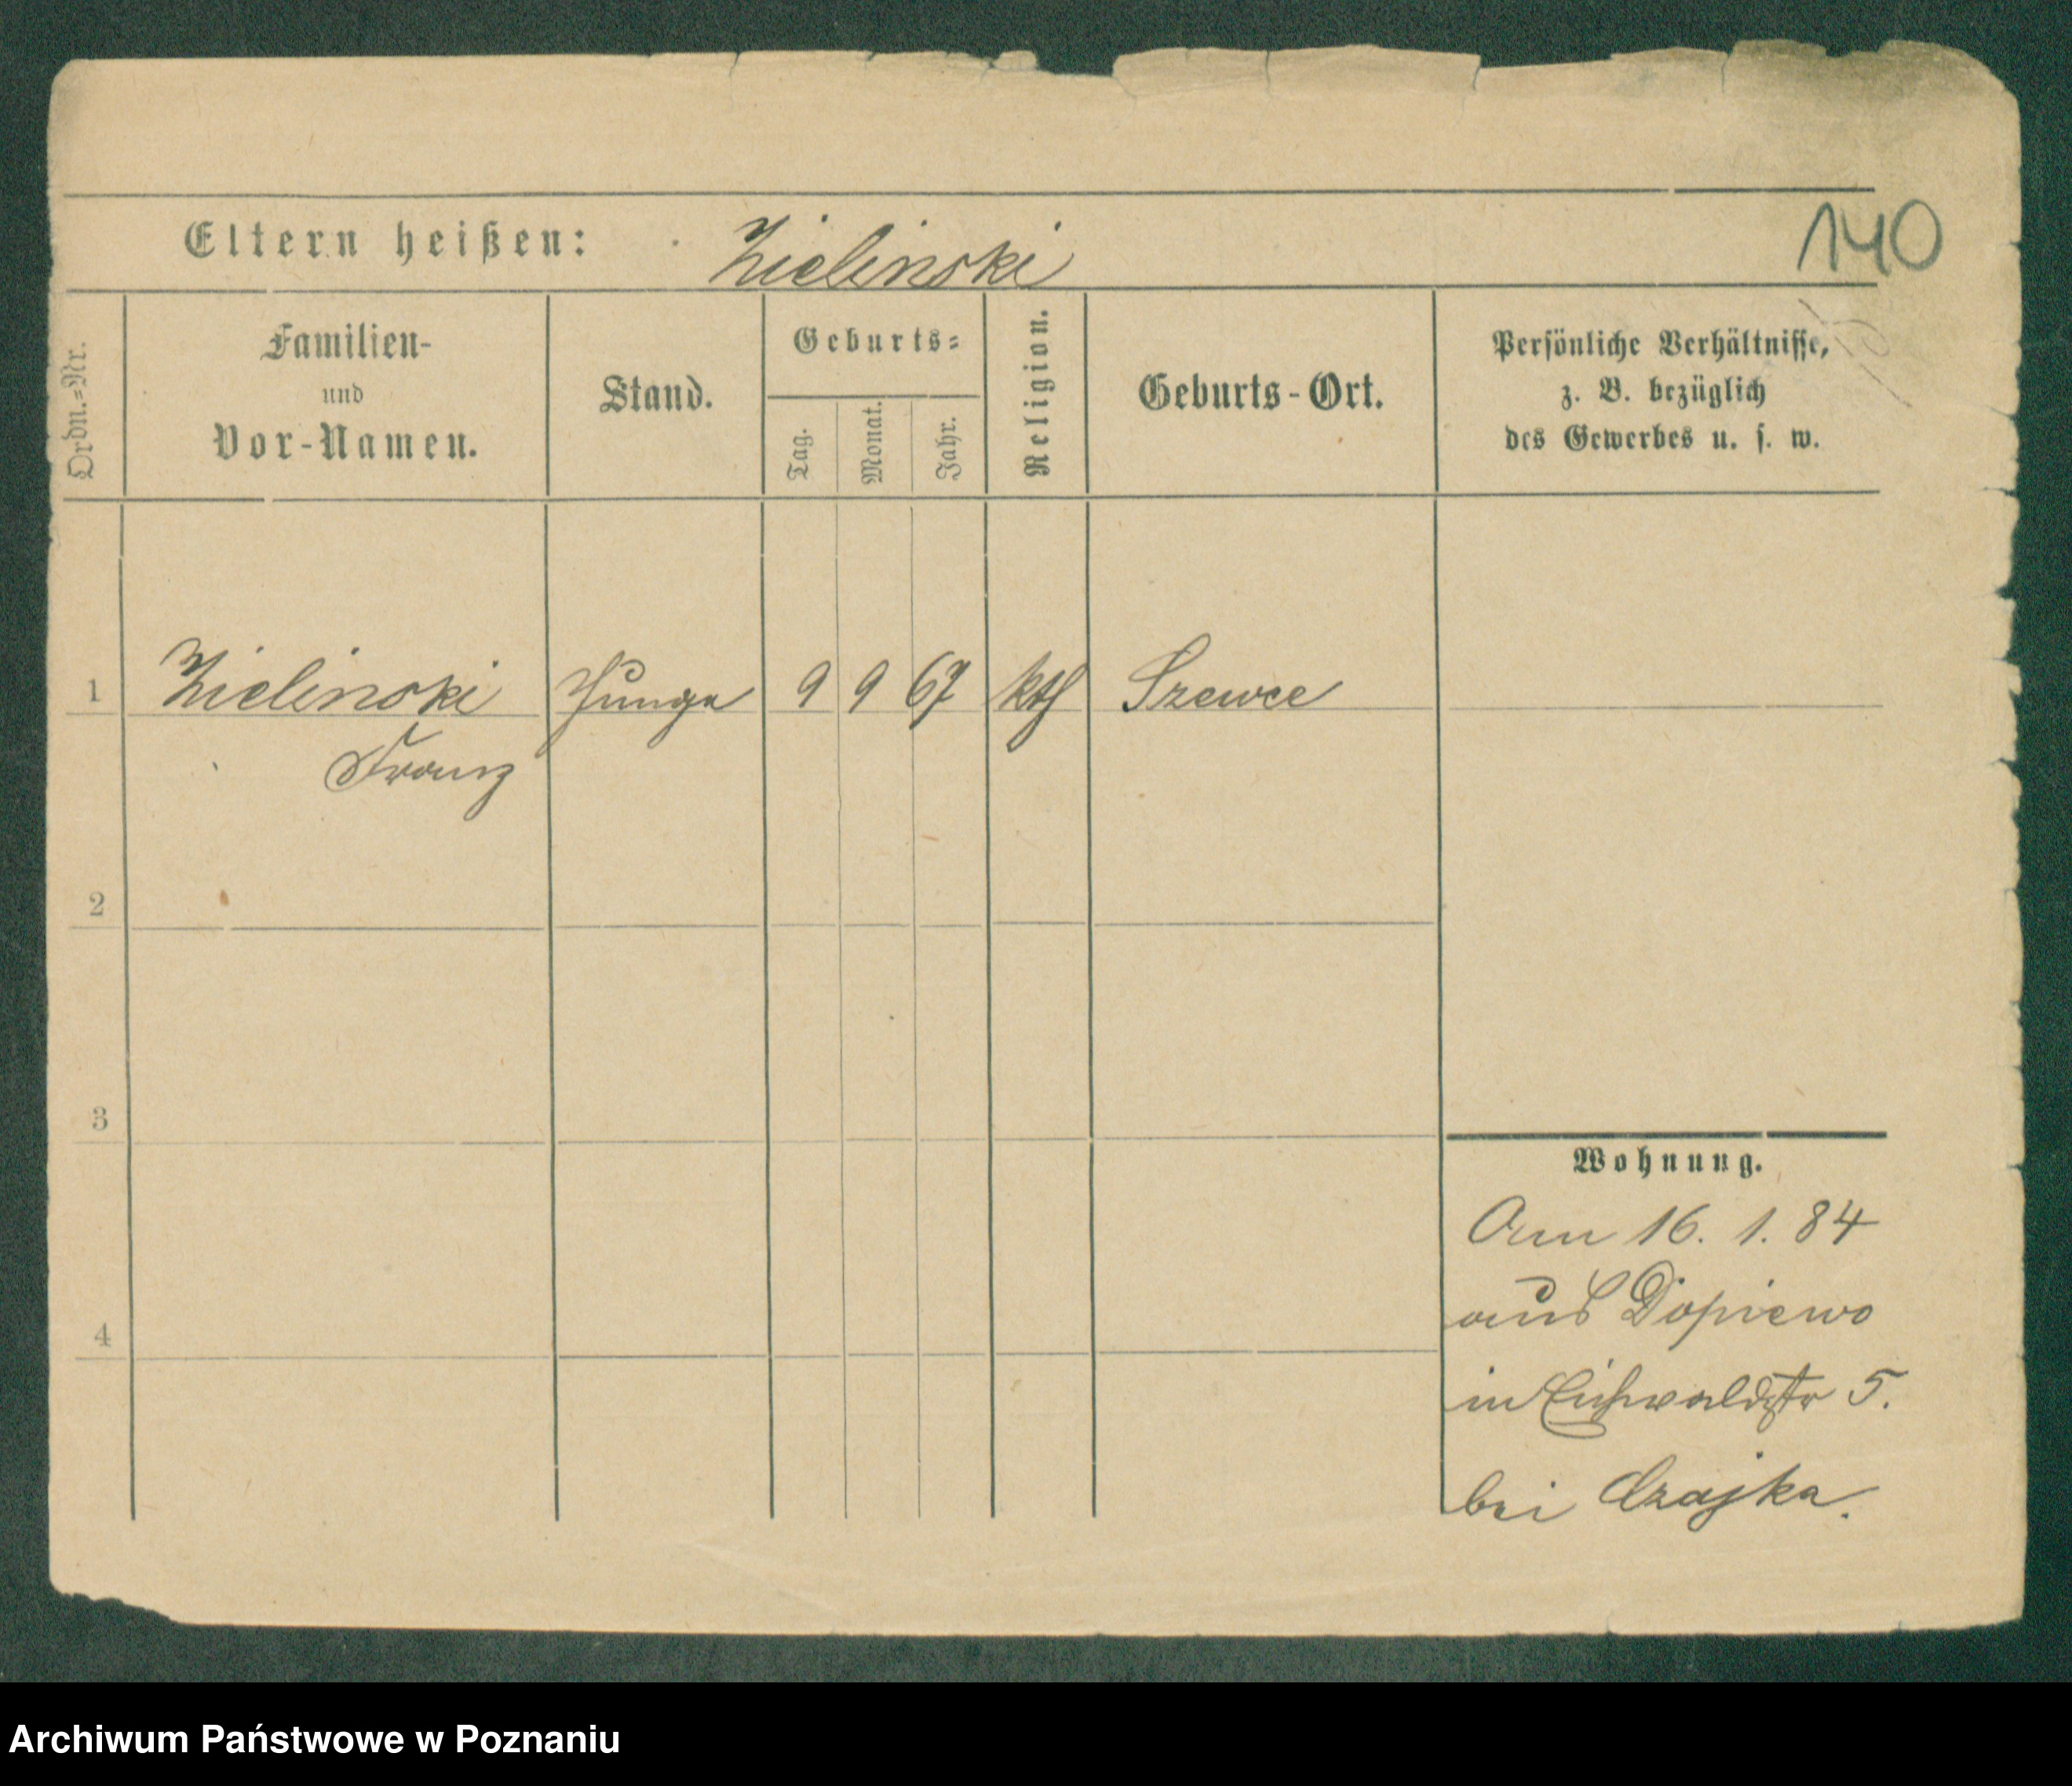 Eltern heißen: Zielinski
140
Ordn.=Nr.
Familien-
und
Vor-Namen.
Stand.
Geburts=
Tag.
Monat.
Jahr.
Religion.
Geburts-Ort.
Persönliche Verhältnisse,
z. B. bezüglich
des Gewerbes u. s. w.
1 Zielinski Junge 9 9 67 kth Szewce
Franz
2
3
4
Wohnung.
Am 16. 1. 84
aus Dopiewo
in Eichwaldstr 5.
bei Czajka.
Archiwum Państwowe w Poznaniu